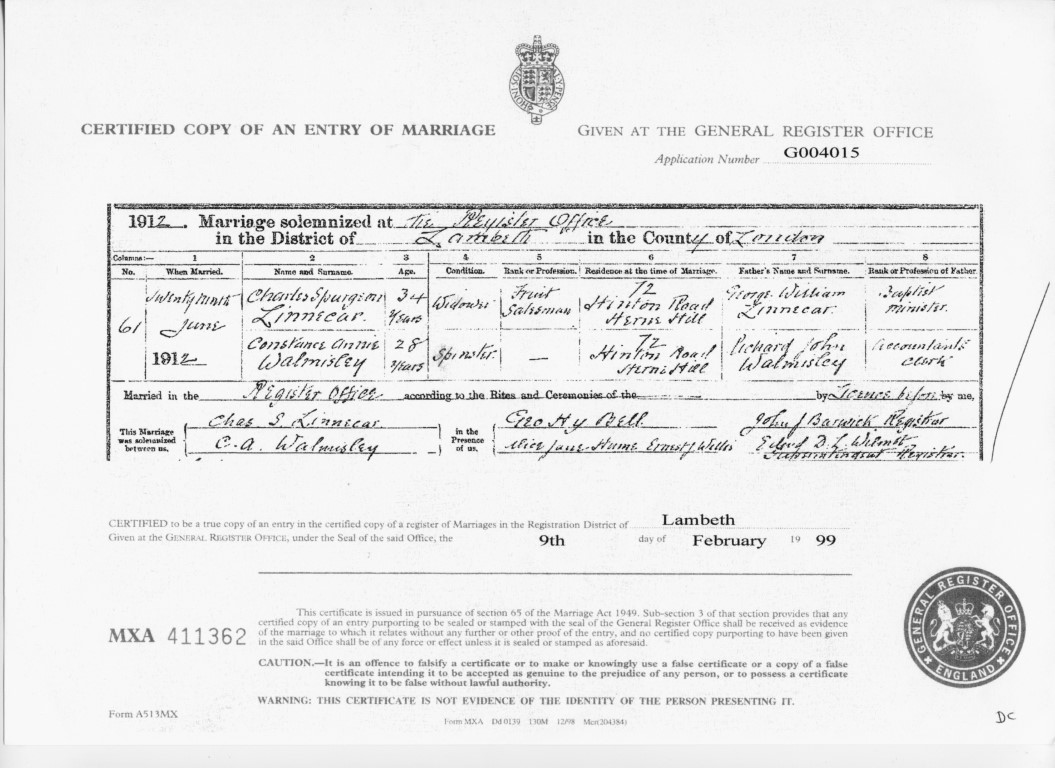 HONI·SOIT·QUI·MAL·Y·PENSE
CERTIFIED COPY OF AN ENTRY OF MARRIAGE GIVEN AT THE GENERAL REGISTER OFFICE
Application Number G004015
1912. Marriage solemnized at The Register Office
in the District of Lambeth in the County of London
Columns:— 1 2 3 4 5 6 7 8
No. When Married. Name and Surname. Age. Condition. Rank or Profession. Residence at the time of Marriage. Father's Name and Surname. Rank or Profession of Father.
61 Twenty ninth June 1912 Charles Spurgeon Linnecar. 34 years Widower Fruit Salesman 72 Hinton Road Herne Hill George William Linnecar. Baptist Minister.
Constance Annie Walmisley 28 years Spinster — 72 Hinton Road Herne Hill Richard John Walmisley Accountants Clerk
Married in the Register Office according to the Rites and Ceremonies of the by Licence before by me,
This Marriage was solemnized between us, Chas S. Linnecar C. A. Walmisley in the Presence of us, Geo Hy Bell Alice Jane Hume Ernest J Willis John J Barwick Registrar
D. L. Superintendent Registrar.
CERTIFIED to be a true copy of an entry in the certified copy of a register of Marriages in the Registration District of Lambeth
Given at the GENERAL REGISTER OFFICE, under the Seal of the said Office, the 9th day of February 19 99
This certificate is issued in pursuance of section 65 of the Marriage Act 1949. Sub-section 3 of that section provides that any
certified copy of an entry purporting to be sealed or stamped with the seal of the General Register Office shall be received as evidence
of the marriage to which it relates without any further or other proof of the entry, and no certified copy purporting to have been given
in the said Office shall be of any force or effect unless it is sealed or stamped as aforesaid.
MXA 411362
CAUTION.—It is an offence to falsify a certificate or to make or knowingly use a false certificate or a copy of a false
certificate intending it to be accepted as genuine to the prejudice of any person, or to possess a certificate
knowing it to be false without lawful authority.
WARNING: THIS CERTIFICATE IS NOT EVIDENCE OF THE IDENTITY OF THE PERSON PRESENTING IT.
GENERAL REGISTER OFFICE
ENGLAND
Form A513MX
Form MXA Dd 0139 130M 12/98 Mcr(204384)
DC